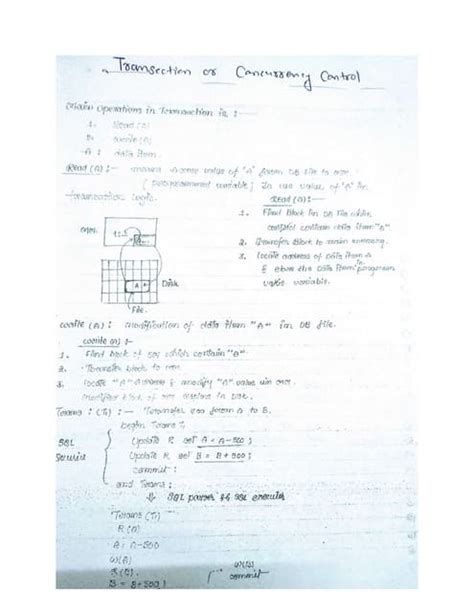 Transection or Concurrency Control
Main Operations in Transection is :-
1. Read (A)
2. write (A)
A : data item.
Read (A) :- means Access value of "A" from DB file to
[ Programmed variable] To use value of "A" in
transaction logic.
Read (A) :-
1. Find Block in DB file which
contain data item "A".
2. Transfer Block to main memory.
3. locate address of data item A
& store the data item in program
variable.
A
Disk
File.
write (A) : modification of data item "A" in DB file.
write (A) :-
1. Find block of which contain "A".
2. Transfer block to
3. locate "A" Address & modify "A" value in
Modified block of
Trans : (T₁) :- Transfer 500 from A to B.
begin Trans T₁
SQL
Update R set A = A - 500 ;
Update R set B = B + 500 ;
commit ;
end Trans ;
SQL parser
Trans (T₁)
R (A)
A = A - 500
W(A)
R(B).
B = B + 500 ;
W(B)
commit